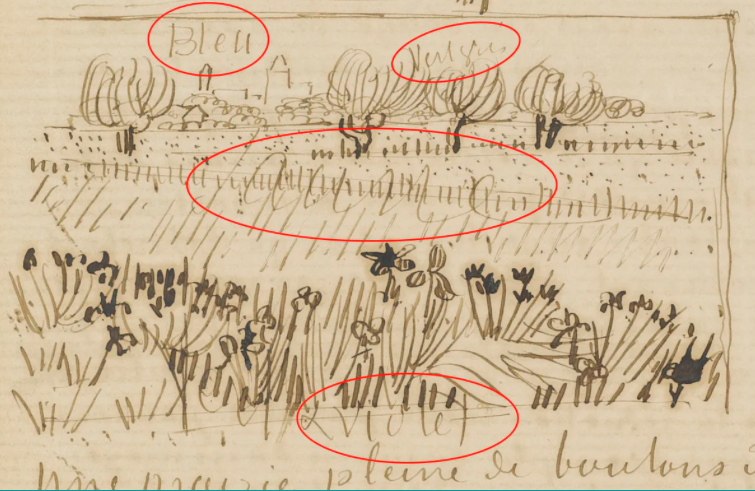 Bleu Vert gris
Violet
une prairie pleine de boutons